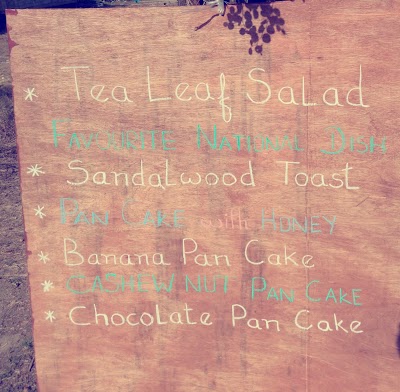 * Tea Leaf Salad
FAVOURITE NATIONAL DISH
* Sandalwood Toast
* PAN CAKE with HONEY
* Banana Pan Cake
* CASHEW NUT PAN CAKE
* Chocolate Pan Cake